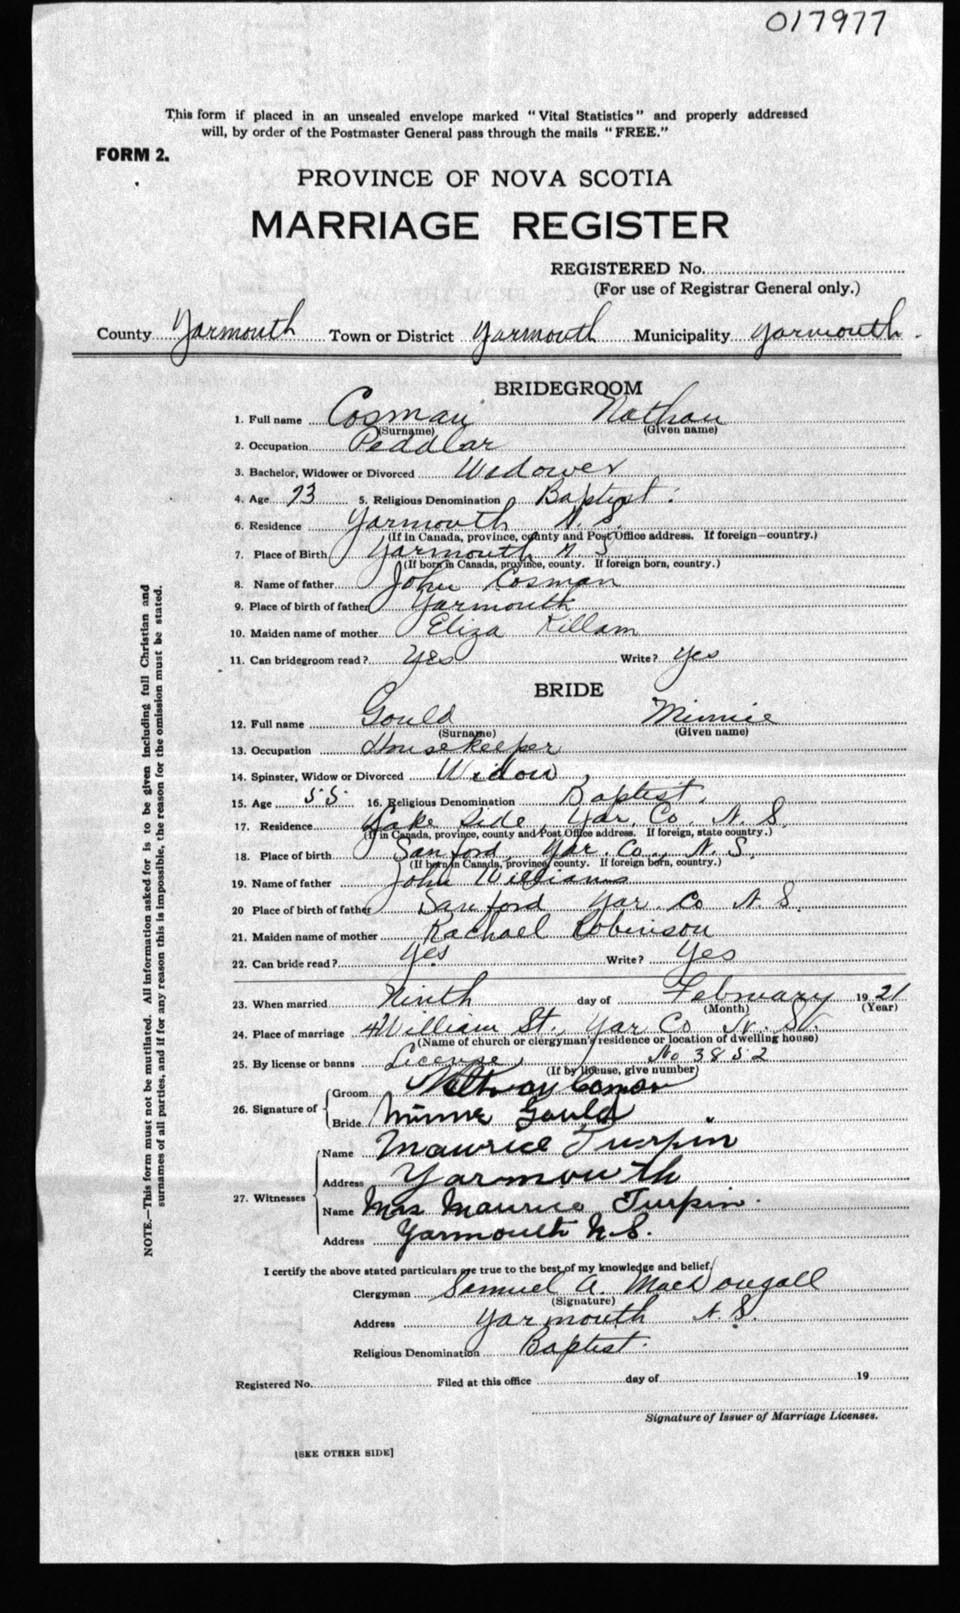 017977
This form if placed in an unsealed envelope marked "Vital Statistics" and properly addressed
will, by order of the Postmaster General pass through the mails "FREE."
FORM 2.
PROVINCE OF NOVA SCOTIA
MARRIAGE REGISTER
REGISTERED No.
(For use of Registrar General only.)
County Yarmouth Town or District Yarmouth Municipality Yarmouth.
BRIDEGROOM
1. Full name Cosman Nathan
(Surname) (Given name)
2. Occupation Peddlar
3. Bachelor, Widower or Divorced Widower
4. Age 73 5. Religious Denomination Baptist.
6. Residence Yarmouth N. S.
(If in Canada, province, county and Post Office address. If foreign—country.)
7. Place of Birth Yarmouth N S
(If born in Canada, province, county. If foreign born, country.)
8. Name of father John Cosman
9. Place of birth of father Yarmouth
10. Maiden name of mother Eliza Killam
11. Can bridegroom read? Yes Write? Yes
BRIDE
12. Full name Gould Minnie
(Surname) (Given name)
13. Occupation Housekeeper
14. Spinster, Widow or Divorced Widow,
15. Age 55 16. Religious Denomination Baptist.
17. Residence Lake Side, Yar. Co. N. S.
(If in Canada, province, county and Post Office address. If foreign, state country.)
18. Place of birth Sanford, Yar. Co., N. S.
(If born in Canada, province, county. If foreign born, country.)
19. Name of father John Williams
20 Place of birth of father Sanford Yar. Co N. S.
21. Maiden name of mother Rachael Robinson
22. Can bride read? Yes Write? Yes
23. When married Ninth day of February 1921
(Month) (Year)
24. Place of marriage 4 William St., Yar Co N. S.
(Name of church or clergyman's residence or location of dwelling house)
25. By license or banns License, No 3852
(If by license, give number)
26. Signature of Groom
Bride Minnie Gould
27. Witnesses Name Maurice Turpin
Address Yarmouth
Name Mrs Maurice Turpin.
Address Yarmouth N. S.
I certify the above stated particulars are true to the best of my knowledge and belief.
Clergyman Samuel A. MacDougall
(Signature)
Address Yarmouth N. S.
Religious Denomination Baptist.
Registered No. Filed at this office day of 19
Signature of Issuer of Marriage Licenses.
[SEE OTHER SIDE]
NOTE.—This form must not be mutilated. All information asked for is to be given including full Christian and
surnames of all parties, and if for any reason this is impossible, the reason for the omission must be stated.